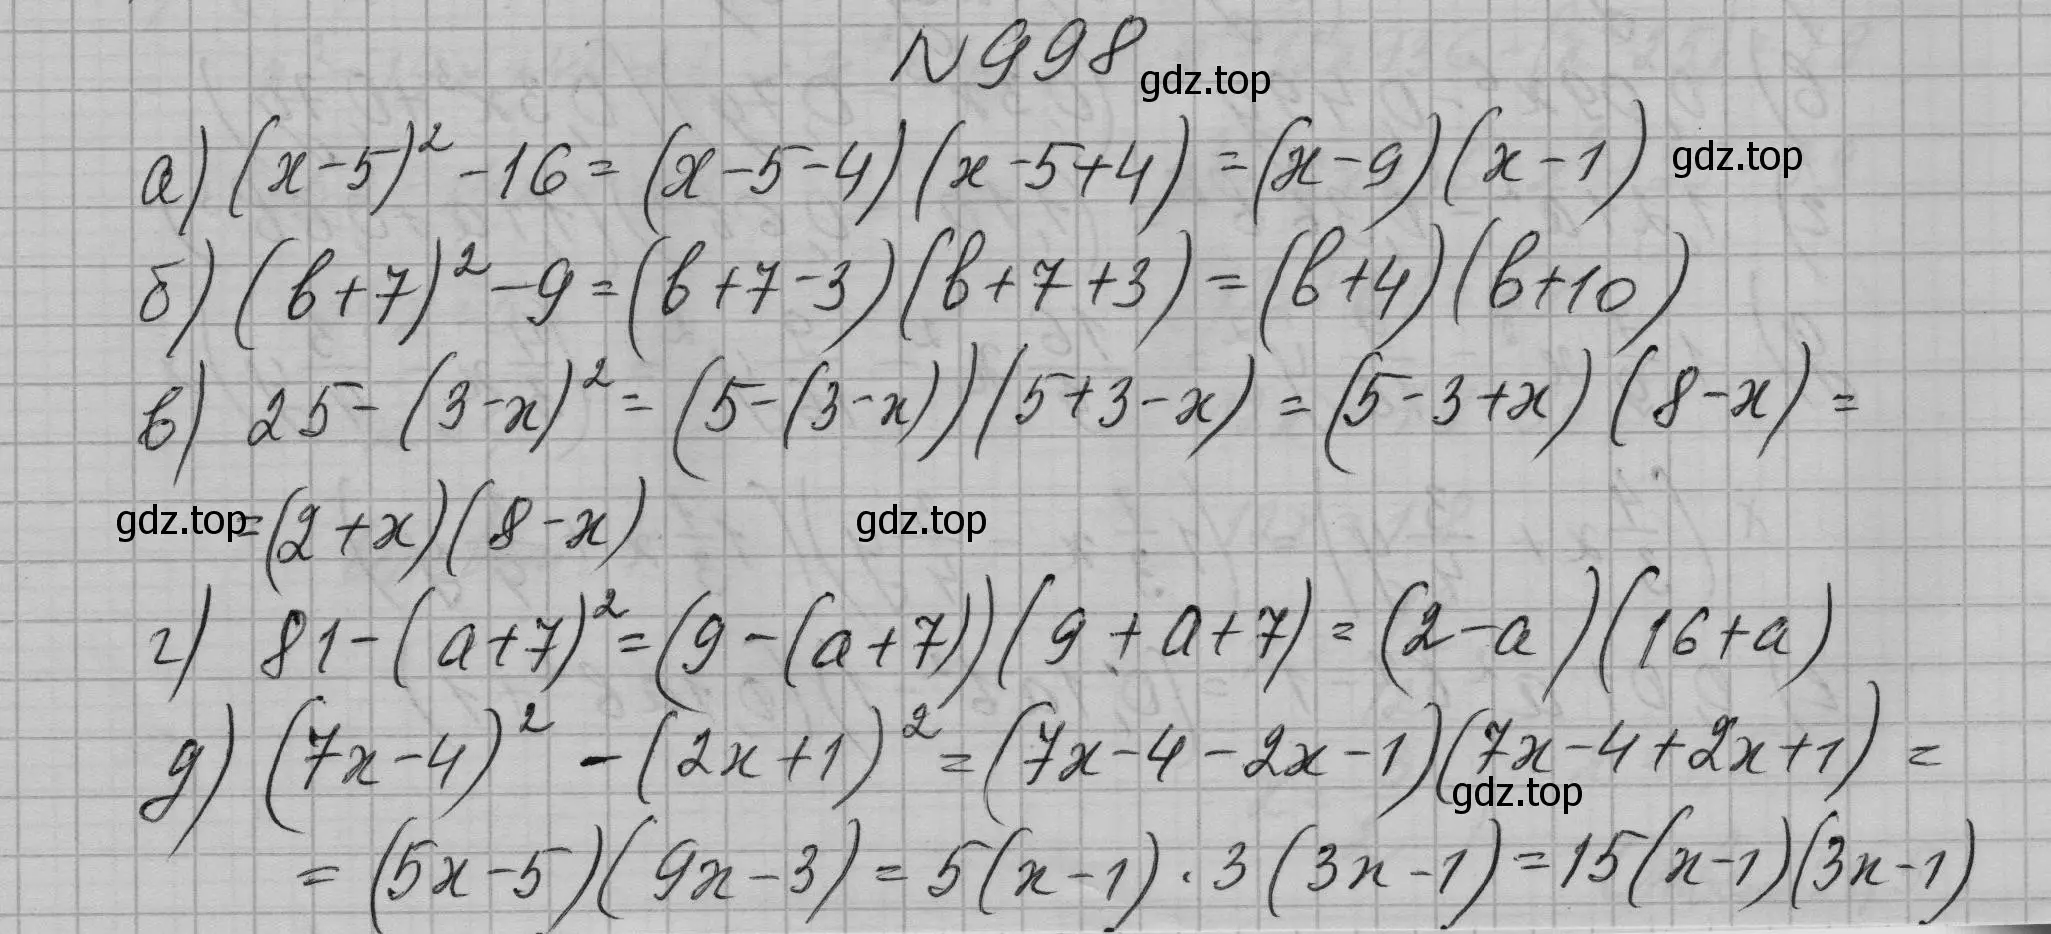 N998
gdz.top
а) (x-5)² -16 = (x-5-4)(x-5+4) = (x-9)(x-1) gdz.top
б) (b+7)² -9 = (b+7-3)(b+7+3) = (b+4)(b+10)
в) 25-(3-x)² = (5-(3-x))(5+3-x) = (5-3+x)(8-x) =
gdz.top =(2+x)(8-x) gdz.top
г) 81-(a+7)² = (9-(a+7))(9+a+7) = (2-a)(16+a)
д) (7x-4)² -(2x+1)² = (7x-4-2x-1)(7x-4+2x+1) =
gdz.top
= (5x-5)(9x-3) = 5(x-1)·3(3x-1) = 15(x-1)(3x-1)